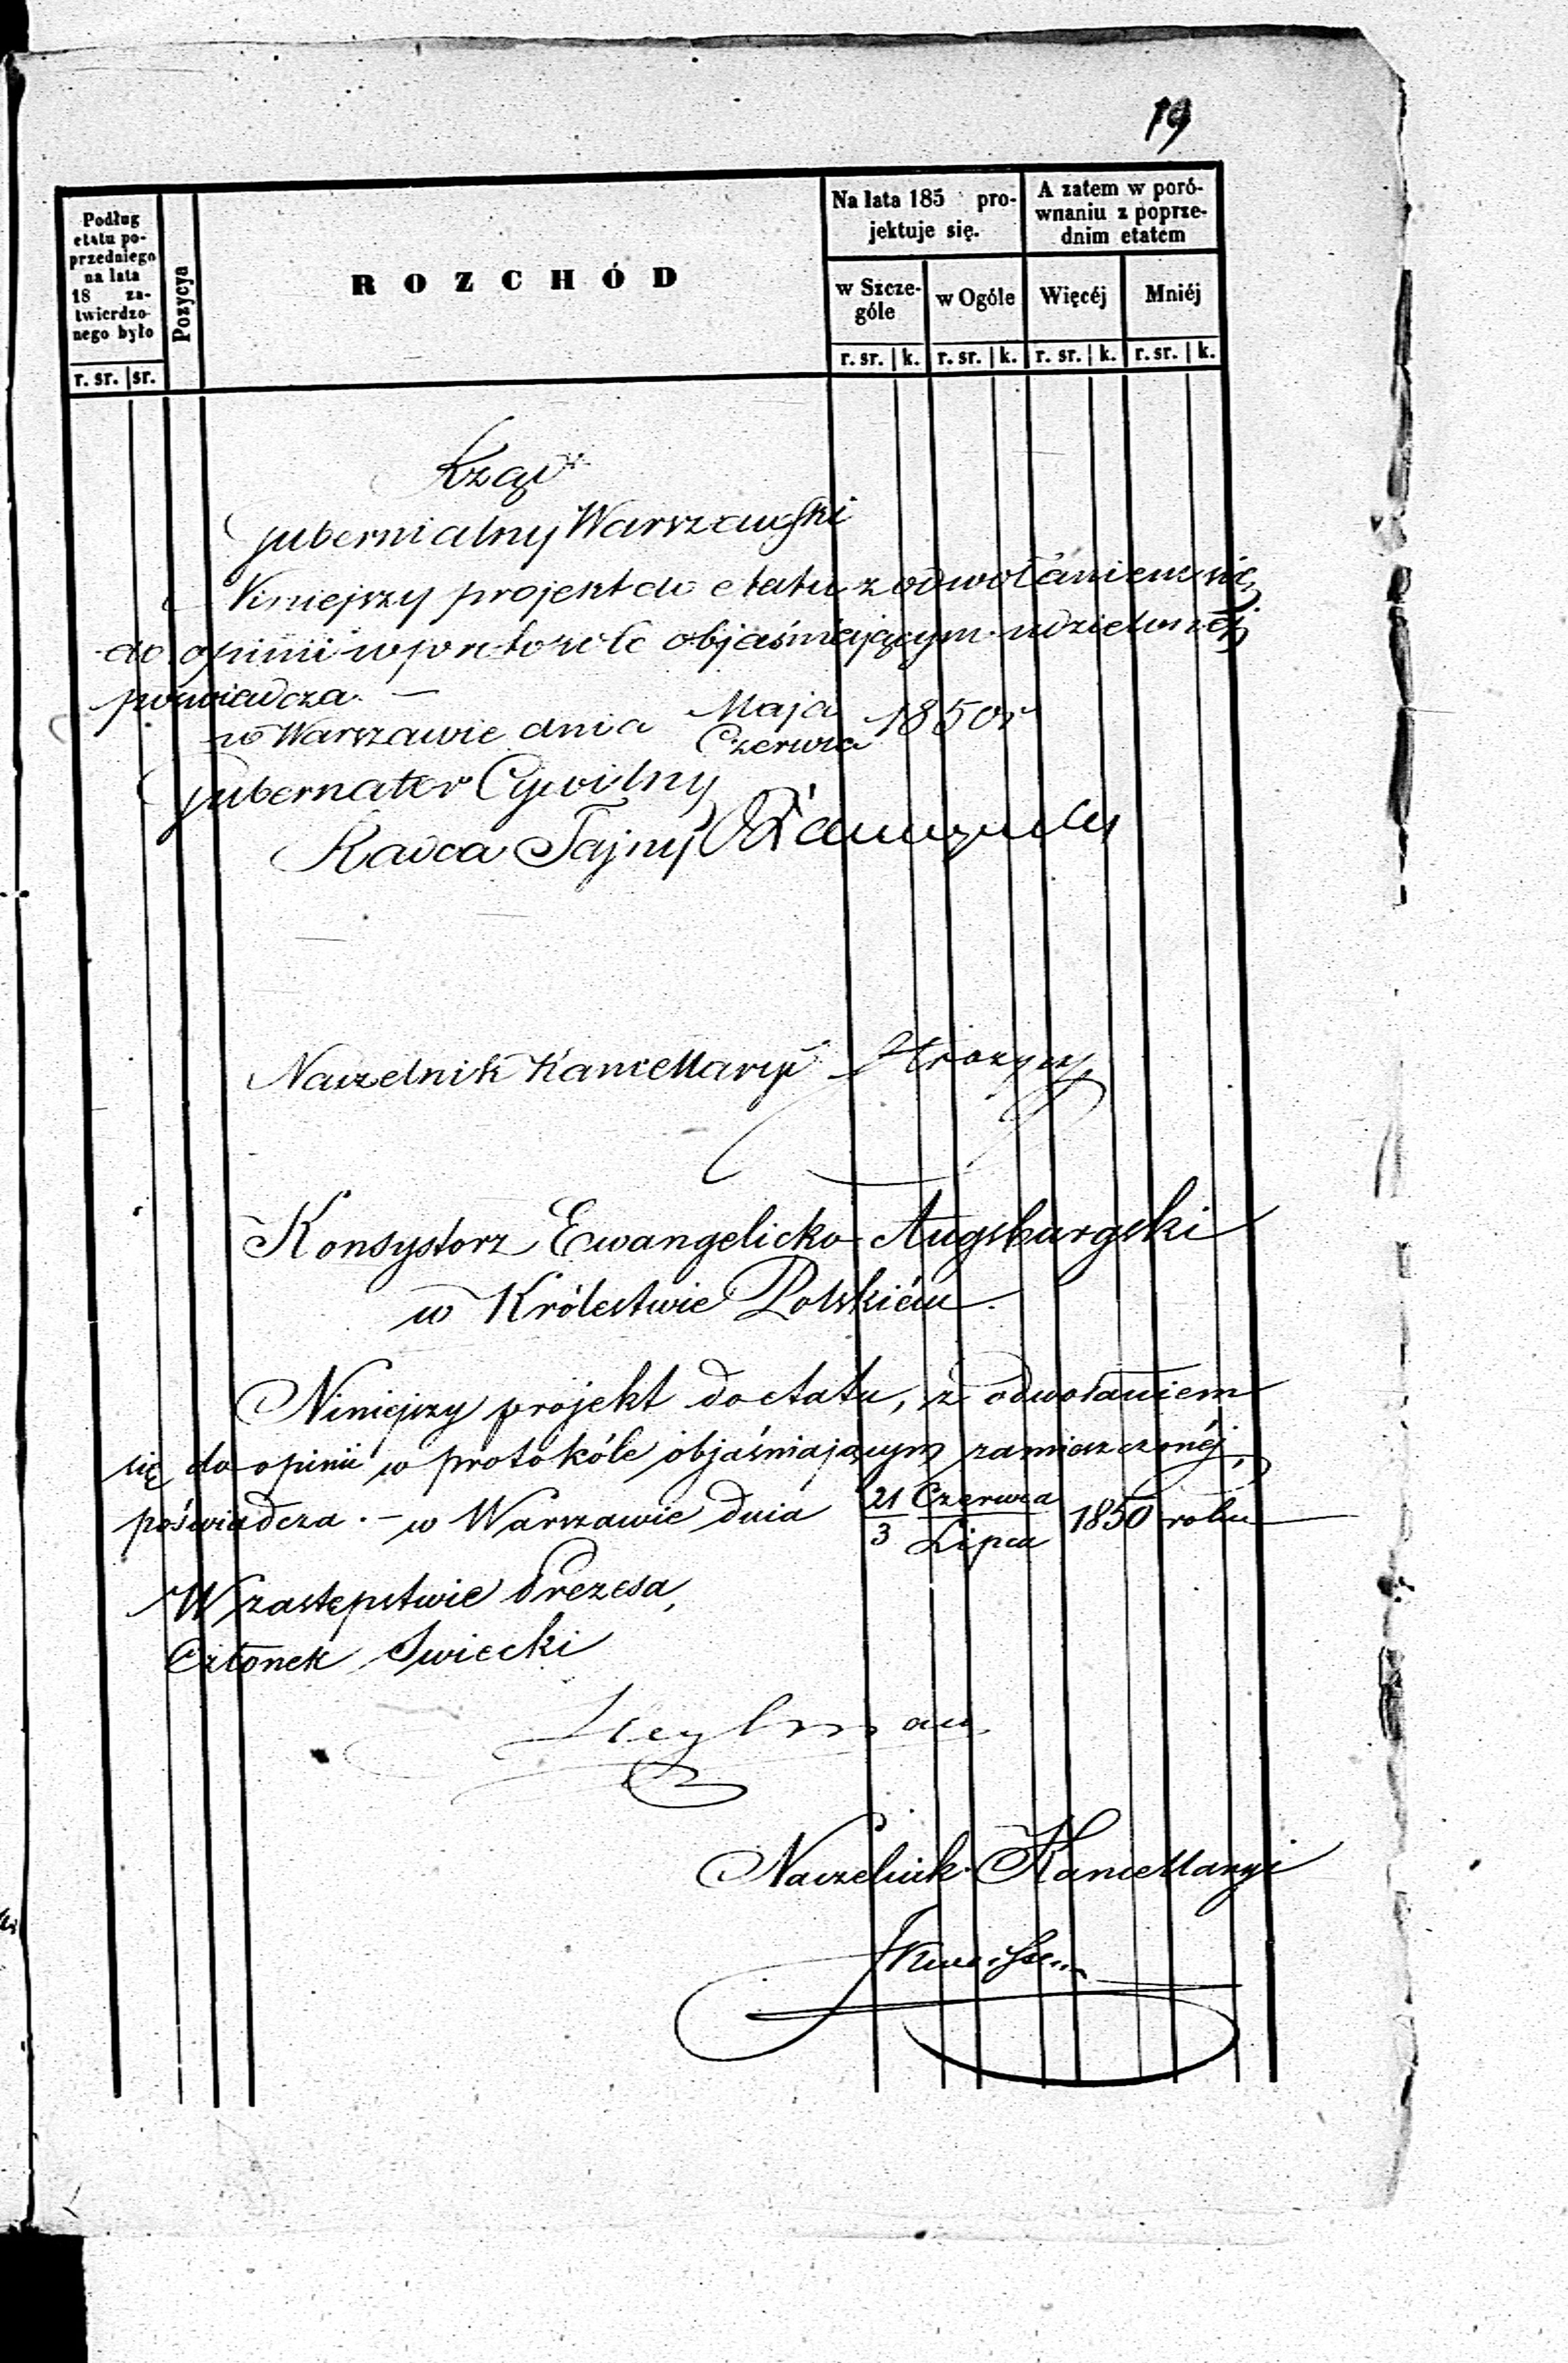 19
Podług
etatu po-
przedniego
na lata
18 za-
twierdzo-
nego było
r. sr. sr.
Pozycya
ROZCHÓD
Na lata 185 pro-
jektuje się.
w Szcze-
góle
w Ogóle
A zatem w poró-
wnaniu z poprze-
dnim etatem
Więcéj
Mniéj
r. sr. k. r. sr. k. r. sr. k. r. sr. k.
Rząd
Gubernialny Warszawski
Niniejszy projekt do etatu z odwołaniem się
do opinii w protokole objaśniającym udzielonéj
poświadcza. —
w Warszawie dnia Maja
Czerwca 1850 r
Gubernator Cywilny
Radca Tajny
Naczelnik Kancellaryi
Konsystorz Ewangelicko-Augsburgski
w Królestwie Polskiém.
Niniejszy projekt do etatu, z odwołaniem
się do opinii w protokóle objaśniającym zamieszczonéj,
poświadcza. — w Warszawie dnia 21 Czerwca
3 Lipca 1850 roku
W zastępstwie Prezesa,
Członek Swiecki
Heylman
Naczelnik Kancellaryi